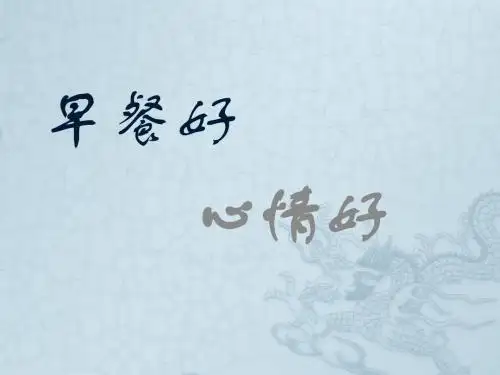 早餐好
心情好